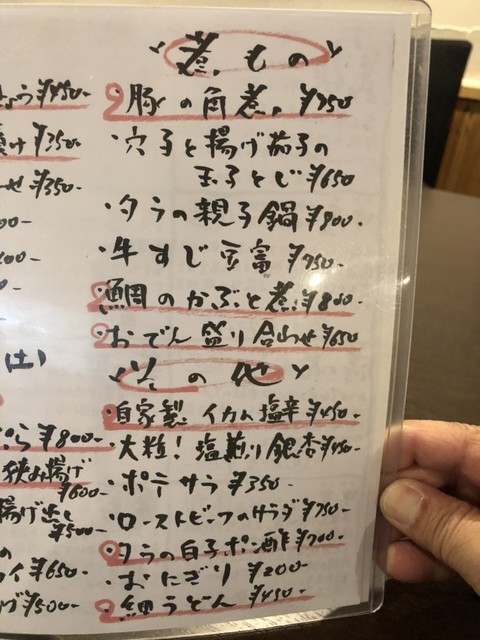 煮もの
・豚の角煮 ¥750
・穴子と揚げ茄子の
玉子とじ ¥650
・タラの親子鍋 ¥900
・牛すじ豆富 ¥750-
・鯛のかぶと煮 ¥800-
・おでん盛り合わせ ¥650
その他
・自家製イカの塩辛 ¥450-
・大粒!塩煎り銀杏 ¥450-
・ポテサラ ¥350-
・ローストビーフのサラダ ¥750-
・タラの白子ポン酢 ¥700-
・おにぎり ¥200-
・細うどん ¥450-
¥450-
け ¥350-
せ ¥350-
(土)
ら ¥800-
挟み揚げ
¥600-
揚げ出し
¥500-
の
イ ¥650
げ ¥500-